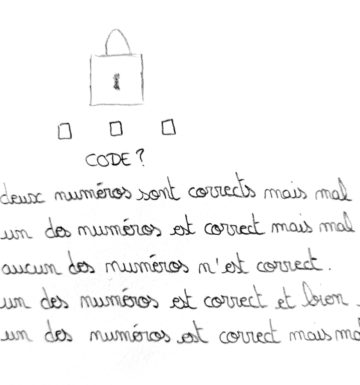 CODE ?
deux numéros sont corrects mais mal
un des numéros est correct mais mal
aucun des numéros n'est correct.
un des numéros est correct et bien
un des numéros est correct mais